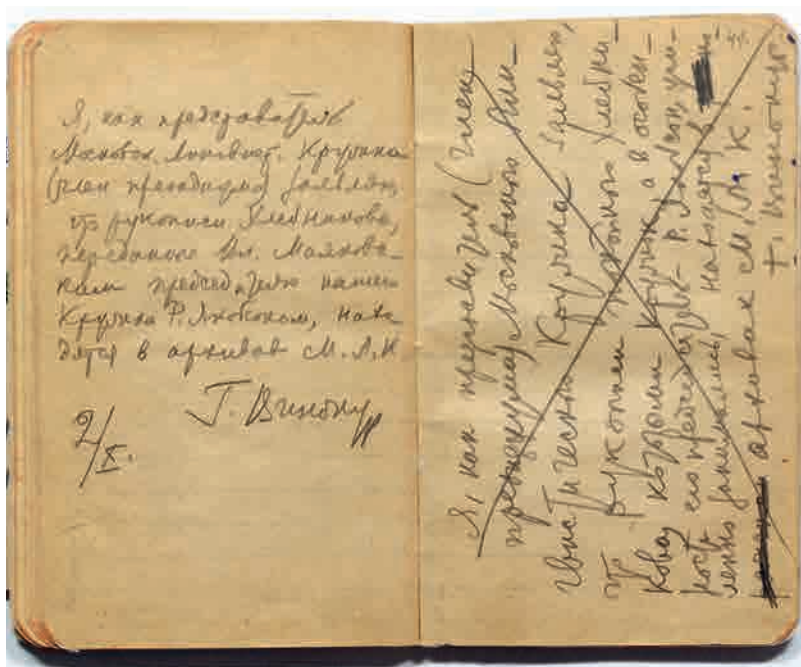 Я, как представитель
Московск. Лингвист. Кружка
(член президиума) заявляю,
что рукописи Хлебникова,
переданные Вл. Маяков-
ским председателю нашего
Кружка Р. Якобсоном, нахо
дятся в архивах М.Л.К
Г. Винокур
2/X.
Я, как представитель (член
президиума) Московского Лин-
гвистического Кружка заявляю,
что рукописи покойного Хлебни-
кова, которыми Кружок, а в особен-
ности его председатель Р. Якобсон, уси-
ленно занимались, находятся в
архивах М.Л.К.
Г. Винокур